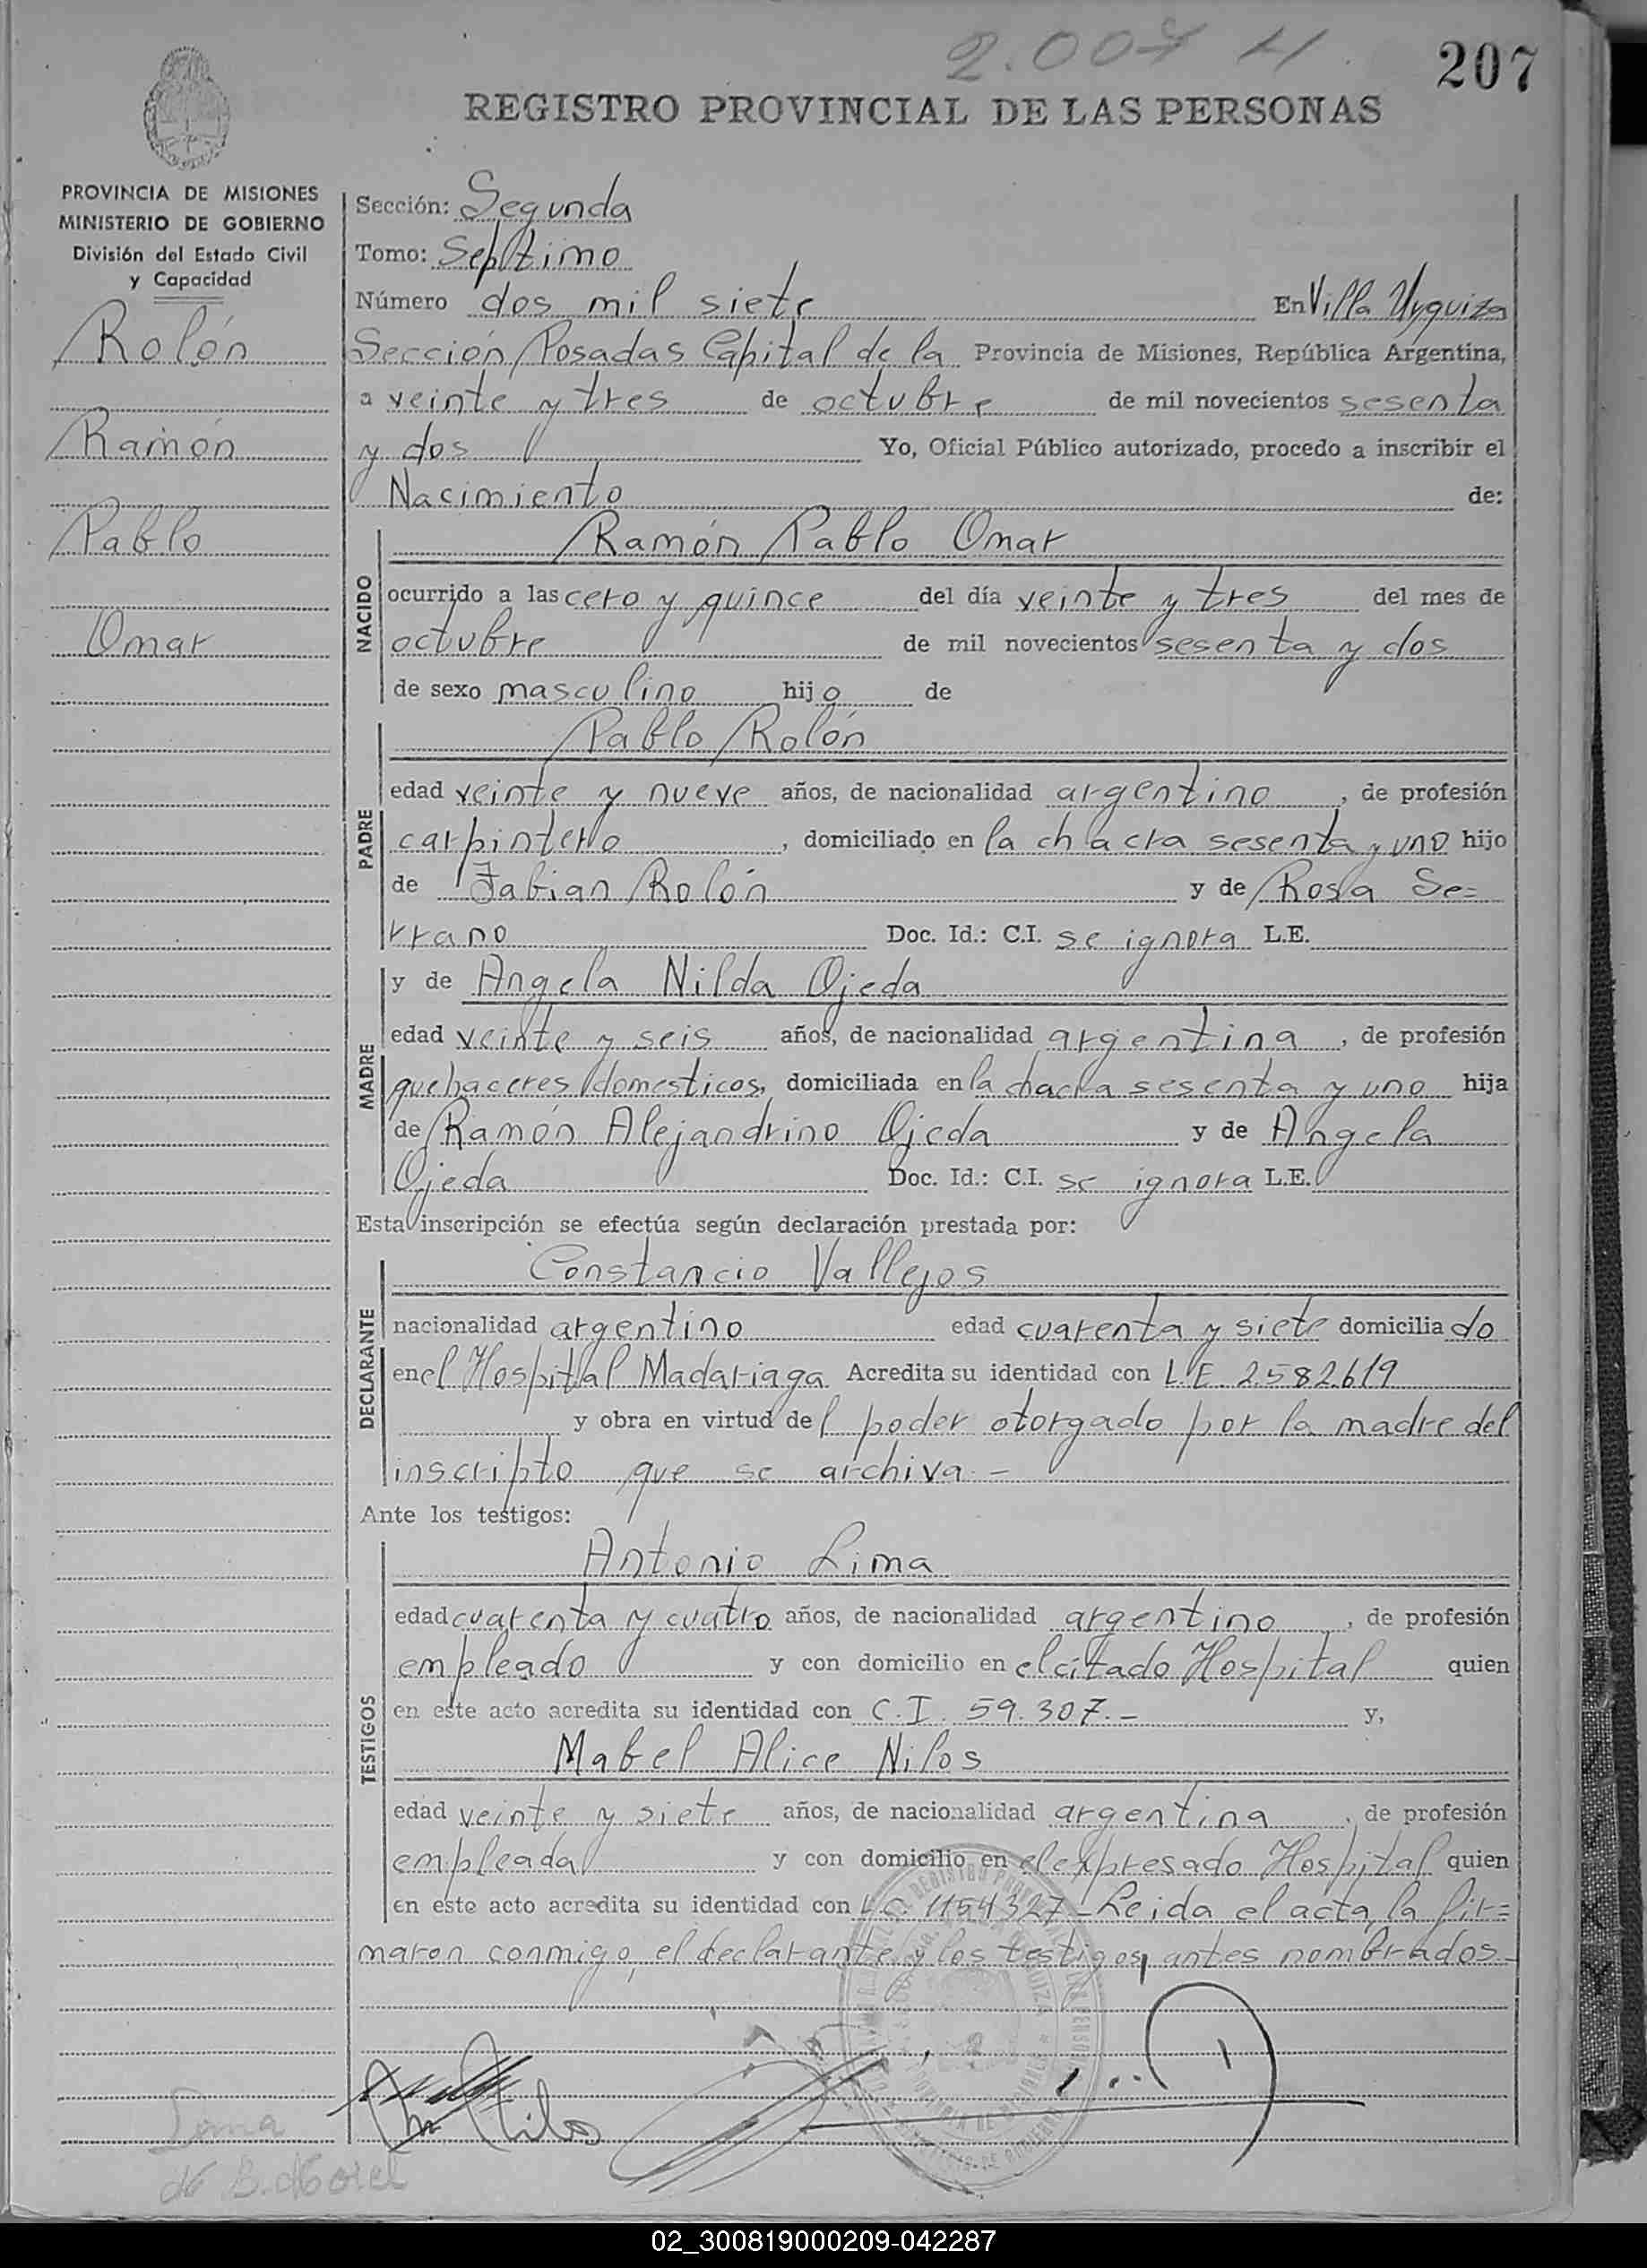 2.007 H.
207
REGISTRO PROVINCIAL DE LAS PERSONAS
PROVINCIA DE MISIONES
MINISTERIO DE GOBIERNO
División del Estado Civil
y Capacidad
Rolón
Ramón
Pablo
Omar
Sección: Segunda
Tomo: Septimo
Número dos mil siete En Villa Urquiza
Sección Posadas Capital de la Provincia de Misiones, República Argentina,
a veinte y tres de octubre de mil novecientos sesenta
y dos Yo, Oficial Público autorizado, procedo a inscribir el
Nacimiento de:
NACIDO
Ramón Pablo Omar
ocurrido a las cero y quince del día veinte y tres del mes de
octubre de mil novecientos sesenta y dos
de sexo masculino hijo de
PADRE
Pablo Rolón
edad veinte y nueve años, de nacionalidad argentino, de profesión
carpintero, domiciliado en la chacra sesenta y uno hijo
de Fabian Rolón y de Rosa Se=
rrano Doc. Id.: C.I. se ignora L.E.
MADRE
y de Angela Nilda Ojeda
edad veinte y seis años, de nacionalidad argentina, de profesión
quehaceres domesticos, domiciliada en la chacra sesenta y uno hija
de Ramón Alejandrino Ojeda y de Angela
Ojeda Doc. Id.: C.I. se ignora L.E.
Esta inscripción se efectúa según declaración prestada por:
DECLARANTE
Constancio Vallejos
nacionalidad argentino edad cuarenta y siete domiciliado
en el Hospital Madariaga Acredita su identidad con L.E. 2.582.619
y obra en virtud del poder otorgado por la madre del
inscripto que se archiva.-
Ante los testigos:
TESTIGOS
Antonio Lima
edad cuarenta y cuatro años, de nacionalidad argentino, de profesión
empleado y con domicilio en el citado Hospital quien
en este acto acredita su identidad con C.I. 59.307.- y,
Mabel Alice Nilos
edad veinte y siete años, de nacionalidad argentina, de profesión
empleada y con domicilio en el expresado Hospital quien
en este acto acredita su identidad con L.C. 1154327-Leida el acta, la fir=
maron conmigo, el declarante y los testigos, antes nombrados.-
02_300819000209-042287